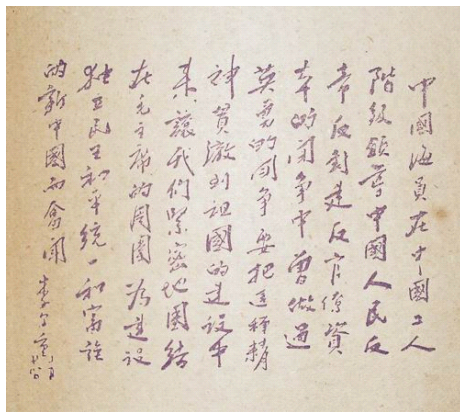 中國海員在中國工人
階級領導中國人民反
帝反封建反官僚資
本的鬥爭中曾做過
英勇的鬥爭 要把這種精
神貫澈到祖國的建設中
來,讓我們緊密地團結
在毛主席的周圍 為建設
獨立民主和平統一和富強
的新中國而奮鬥
李